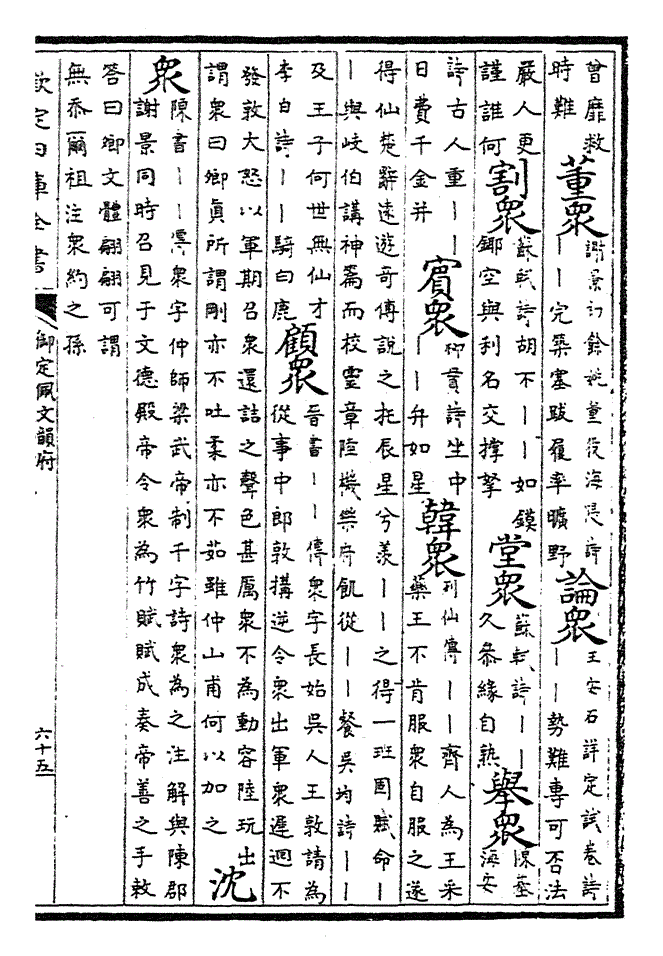 曾靡救
時難
董衆
謝景初餘姚董役海隄詩
丨丨完築塞跋履率曠野
論衆
王安石詳定試卷詩
丨丨勢難專可否法
嚴人更
謹誰何
割衆
蘇軾詩胡不丨丨如鏌
鎁空與利名交撐拏
堂衆
蘇軾詩丨丨
久參緣自熟
舉衆
陳基
海安
詩古人重丨丨
日費千金并
賓衆
柳貫詩坐中
丨丨弁如星
韓衆
列仙傳丨丨齊人為王采
藥王不肯服衆自服之遂
得仙楚辭遠遊奇傅說之托辰星兮羨丨丨之得一班固賦命丨
丨與岐伯講神篇而校靈章陸機樂府飢從丨丨餐吳均詩丨丨
及王子何世無仙才
李白詩丨丨騎白鹿
顧衆
晉書丨丨傳衆字長始吳人王敦請為
從事中郎敦搆逆令衆出軍衆遲迴不
發敦大怒以軍期召衆還詰之聲色甚厲衆不為動容陸玩出
謂衆曰卿真所謂剛亦不吐柔亦不茹雖仲山甫何以加之
沈
衆
陳書丨丨傳衆字仲師梁武帝制千字詩衆為之注解與陳郡
謝景同時召見于文德殿帝令衆為竹賦賦成奏帝善之手敕
答曰卿文體翩翩可謂
無忝爾祖注衆約之孫
欽定四庫全書
御定佩文韻府
六十五